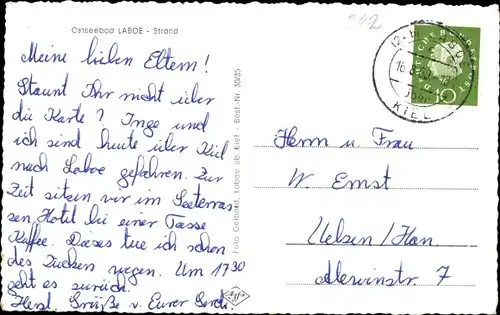 Ostseebad LABOE - Strand
Meine lieben Eltern!
Staunt Ihr nicht über
die Karte? Inge und
ich sind heute über Kiel
nach Laboe gefahren. Zur
Zeit sitzen wir im Seeterras
sen Hotel bei einer Tasse
Kaffee. Dieses tue ich schon
des Zuckers wegen. Um 17 30
geht es zurück.
Herzl. Grüße v. Eurer
Best.-Nr. 30/35
Laboe üb. Kiel
Foto
242
LABOE
KIEL
10
Herrn u. Frau
W. Ernst
Uelzen/Han.
7